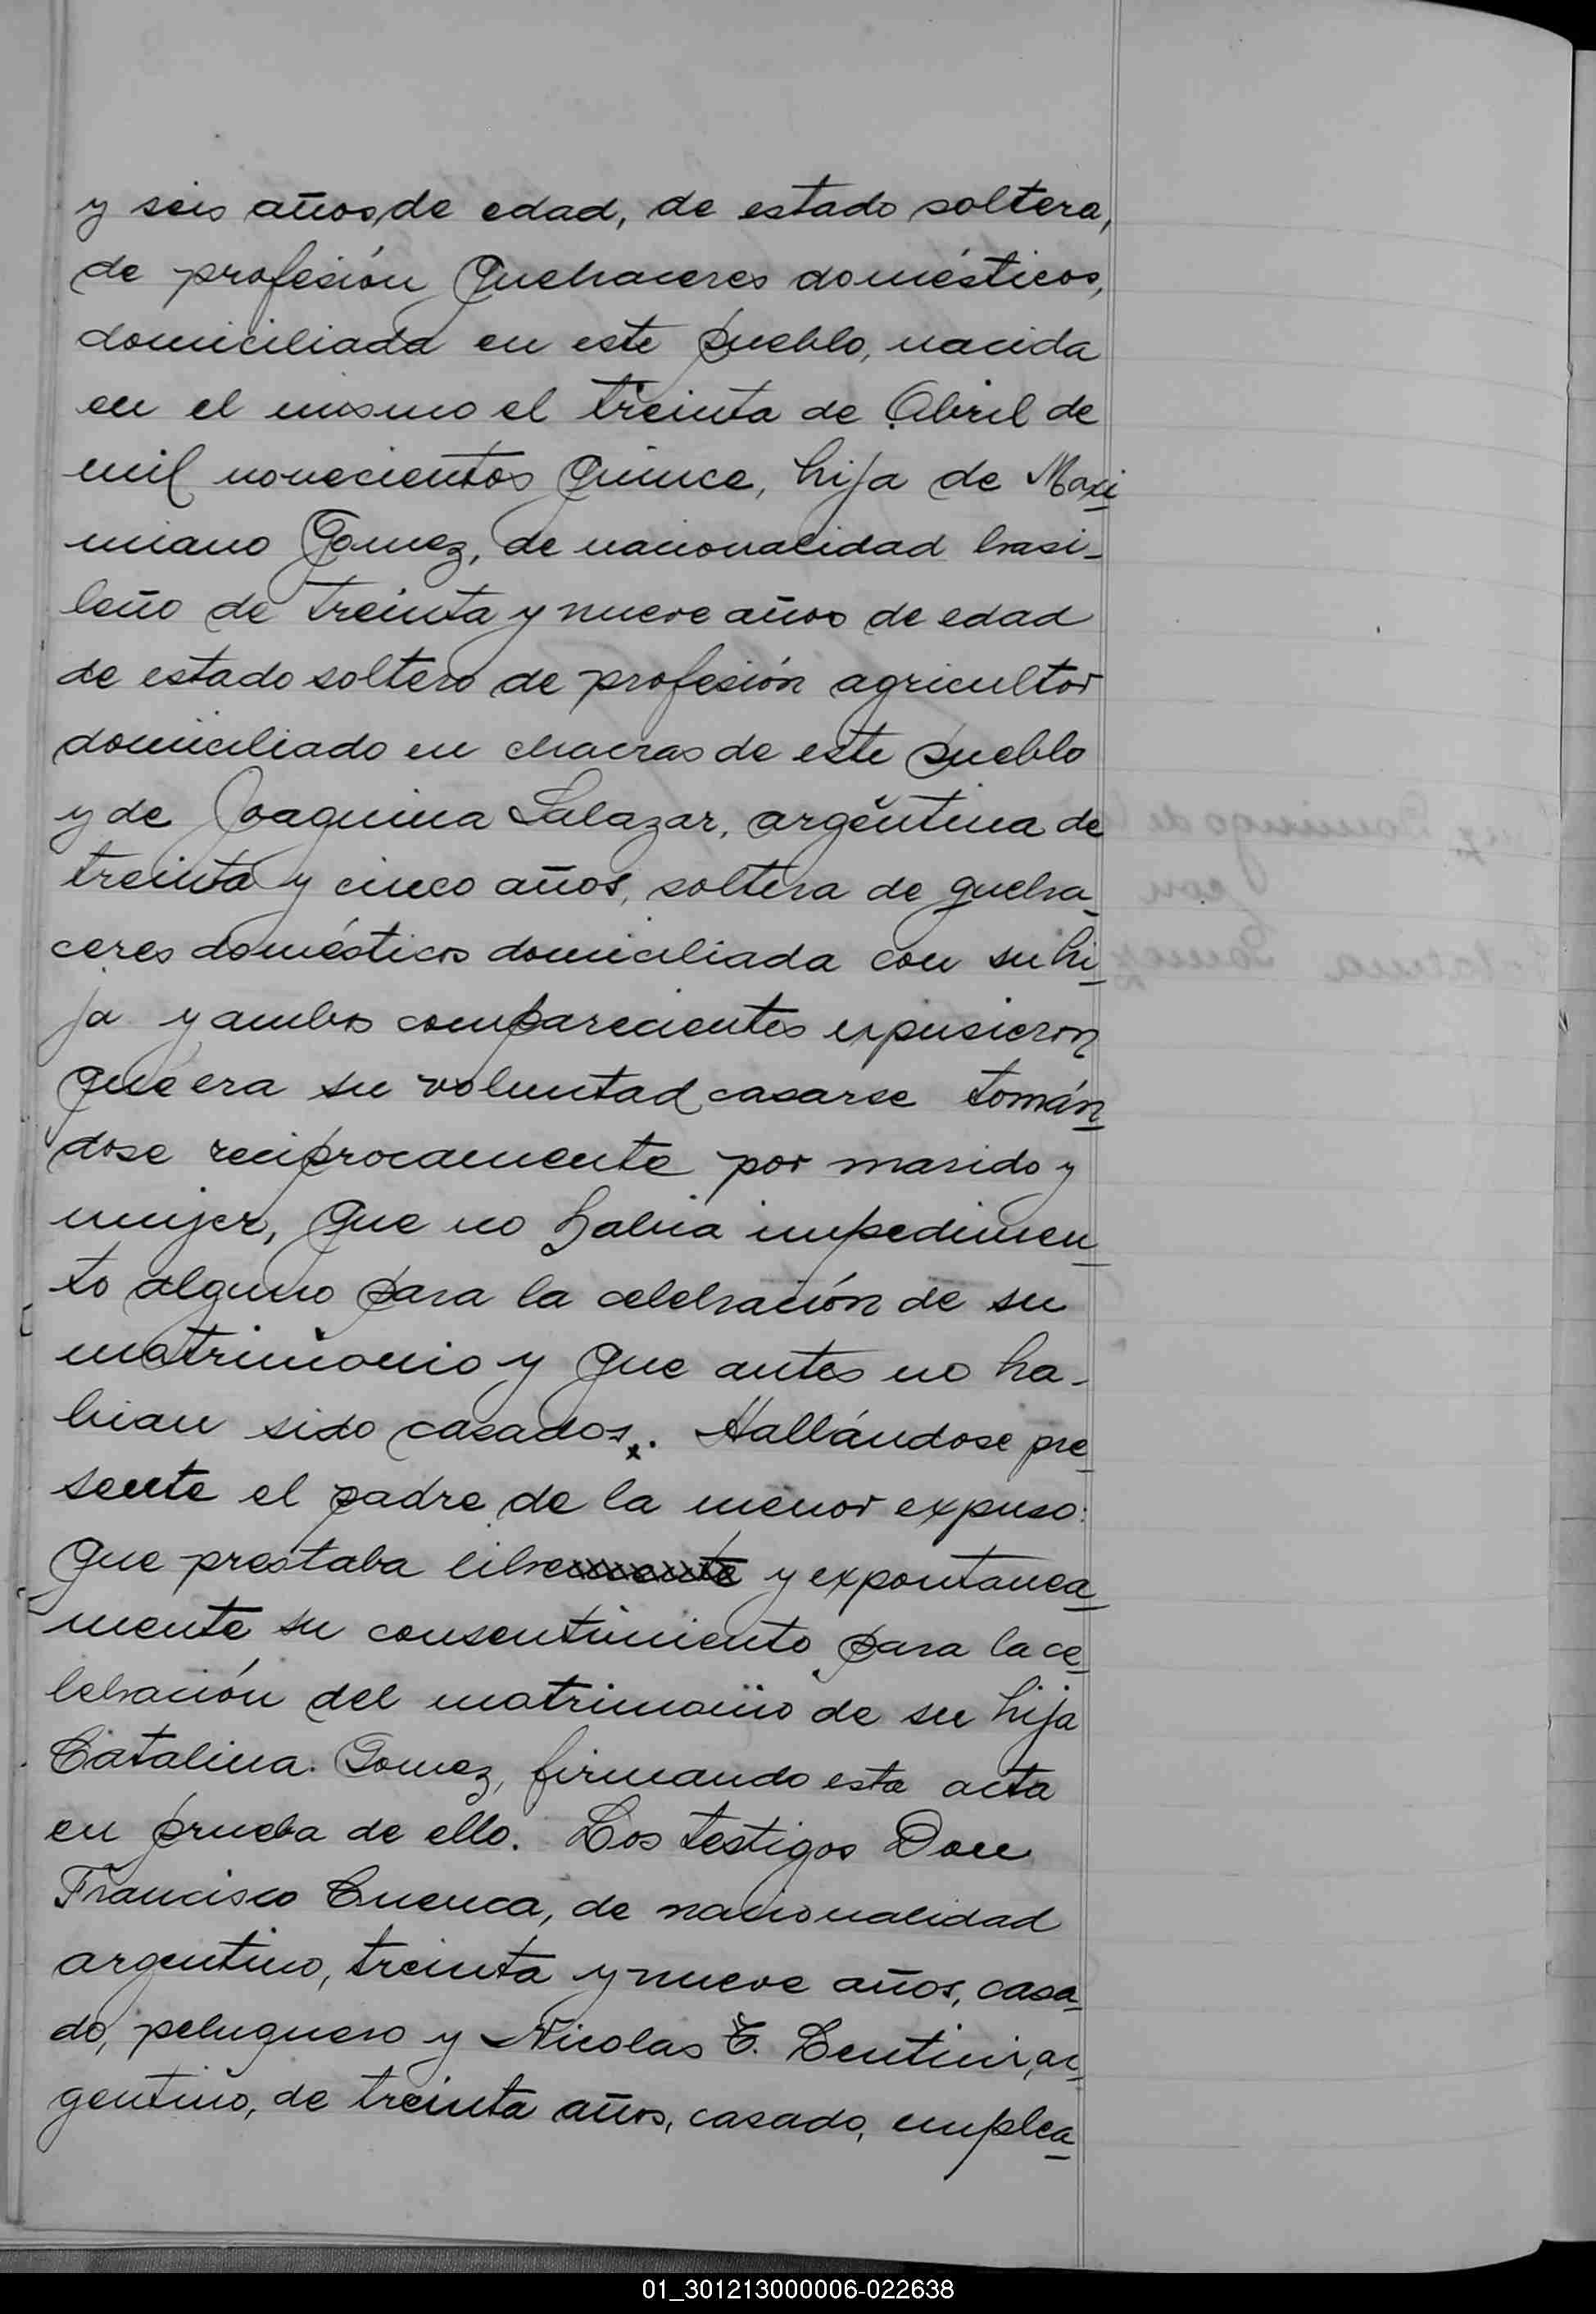 y seis años, de edad, de estado soltera,
de profesión quehaceres domésticos,
domiciliada en este pueblo, nacida
en el mismo el treinta de Abril de
mil novecientos quince, hija de Maxi
miano Gomez, de nacionalidad brasi-
leño de treinta y nueve años de edad
de estado soltero de profesión agricultor
domiciliado en chacras de este pueblo
y de Joaquina Salazar, argentina de
treinta y cinco años, soltera de queha-
ceres domésticos domiciliada con su hi-
ja y ambos comparecientes expusieron
que era su voluntad casarse tomán-
dose reciprocamente por marido y
mujer, que no habia impedimen-
to alguno para la celebración de su
matrimonio y que antes no ha-
bian sido casados. Hallándose pre-
sente el padre de la menor expuso:
Que prestaba libremente y expontanea-
mente su consentimiento para la ce-
lebración del matrimonio de su hija
Catalina Gomez, firmando esta acta
en prueba de ello. Los testigos Don
Francisco Cuenca, de nacionalidad
argentino, treinta y nueve años, casa-
do, peluquero y Nicolas E. Centini, ar-
gentino, de treinta años, casado, emplea-
01_301213000006-022638